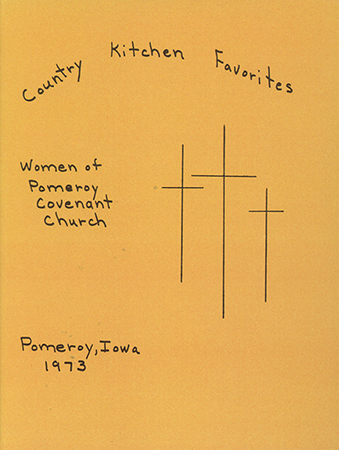 Country Kitchen Favorites
Women of
Pomeroy
Covenant
Church
Pomeroy, Iowa
1973